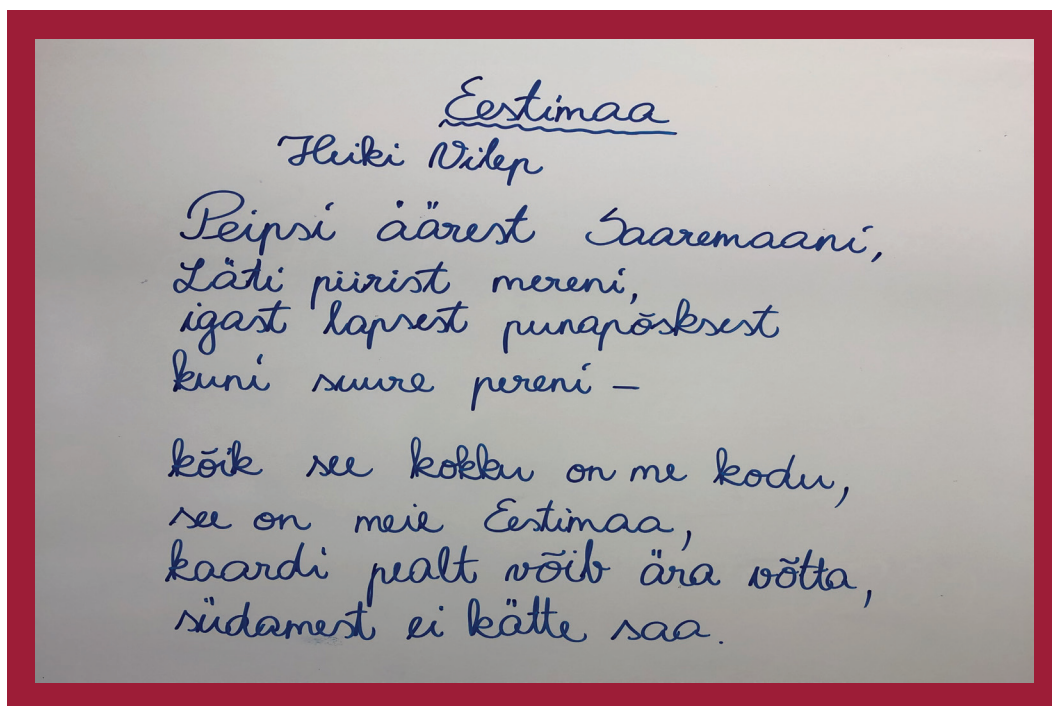 Eestimaa
Heiki Vilep
Peipsi äärest Saaremaani,
Läti piirist mereni,
igast lapsest punapõsksest
kuni suure pereni –
kõik see kokku on me kodu,
see on meie Eestimaa,
kaardi pealt võib ära võtta,
südamest ei kätte saa.